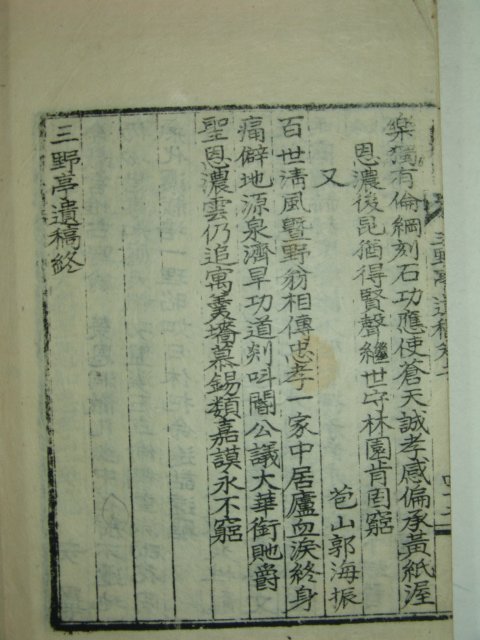 樂獨有倫綱刻石功應使蒼天誠孝感偏承黃紙渥
恩濃後昆猶得賢聲繼世守林園肯固窮
又
苞山郭海振
百世淸風曁野翁相傳忠孝一家中居廬血淚終身
痛僻地源泉濟旱功道剡呌閽公議大華銜貤爵
聖恩濃雲仍追寓羹墻慕錫類嘉謨永不窮
三野亭遺稿終
三野亭遺稿卷二